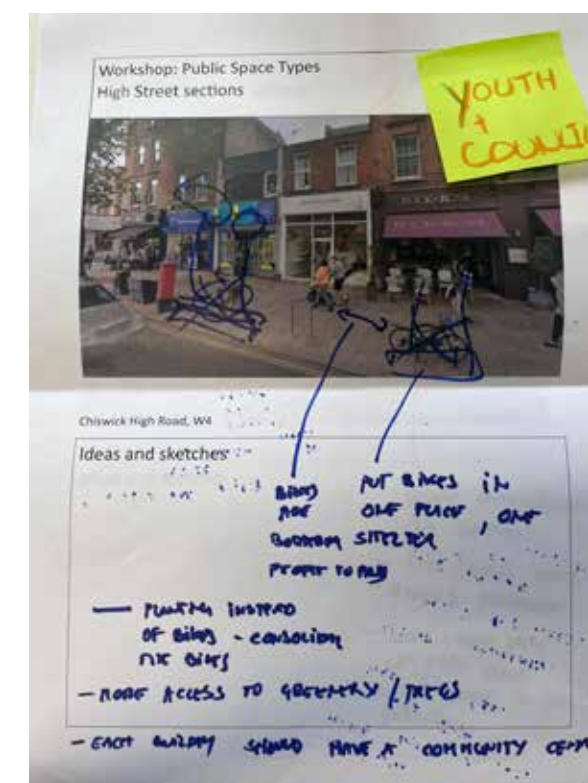 Workshop: Public Space Types
High Street sections
YOUTH
+
COUNCI
Chiswick High Road, W4
Ideas and sketches
BIKES PUT BIKES IN
ARE ONE PLACE, ONE
SHELTER
— PLANTING INSTEAD
OF BIKES - CONSOLIDATE
THE BIKES
- MORE ACCESS TO GREENERY / TREES
- EACH BUILDING SHOULD HAVE A COMMUNITY CENT